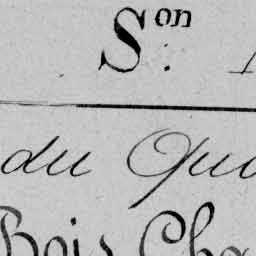 Son.
du Qu
Bois Cha